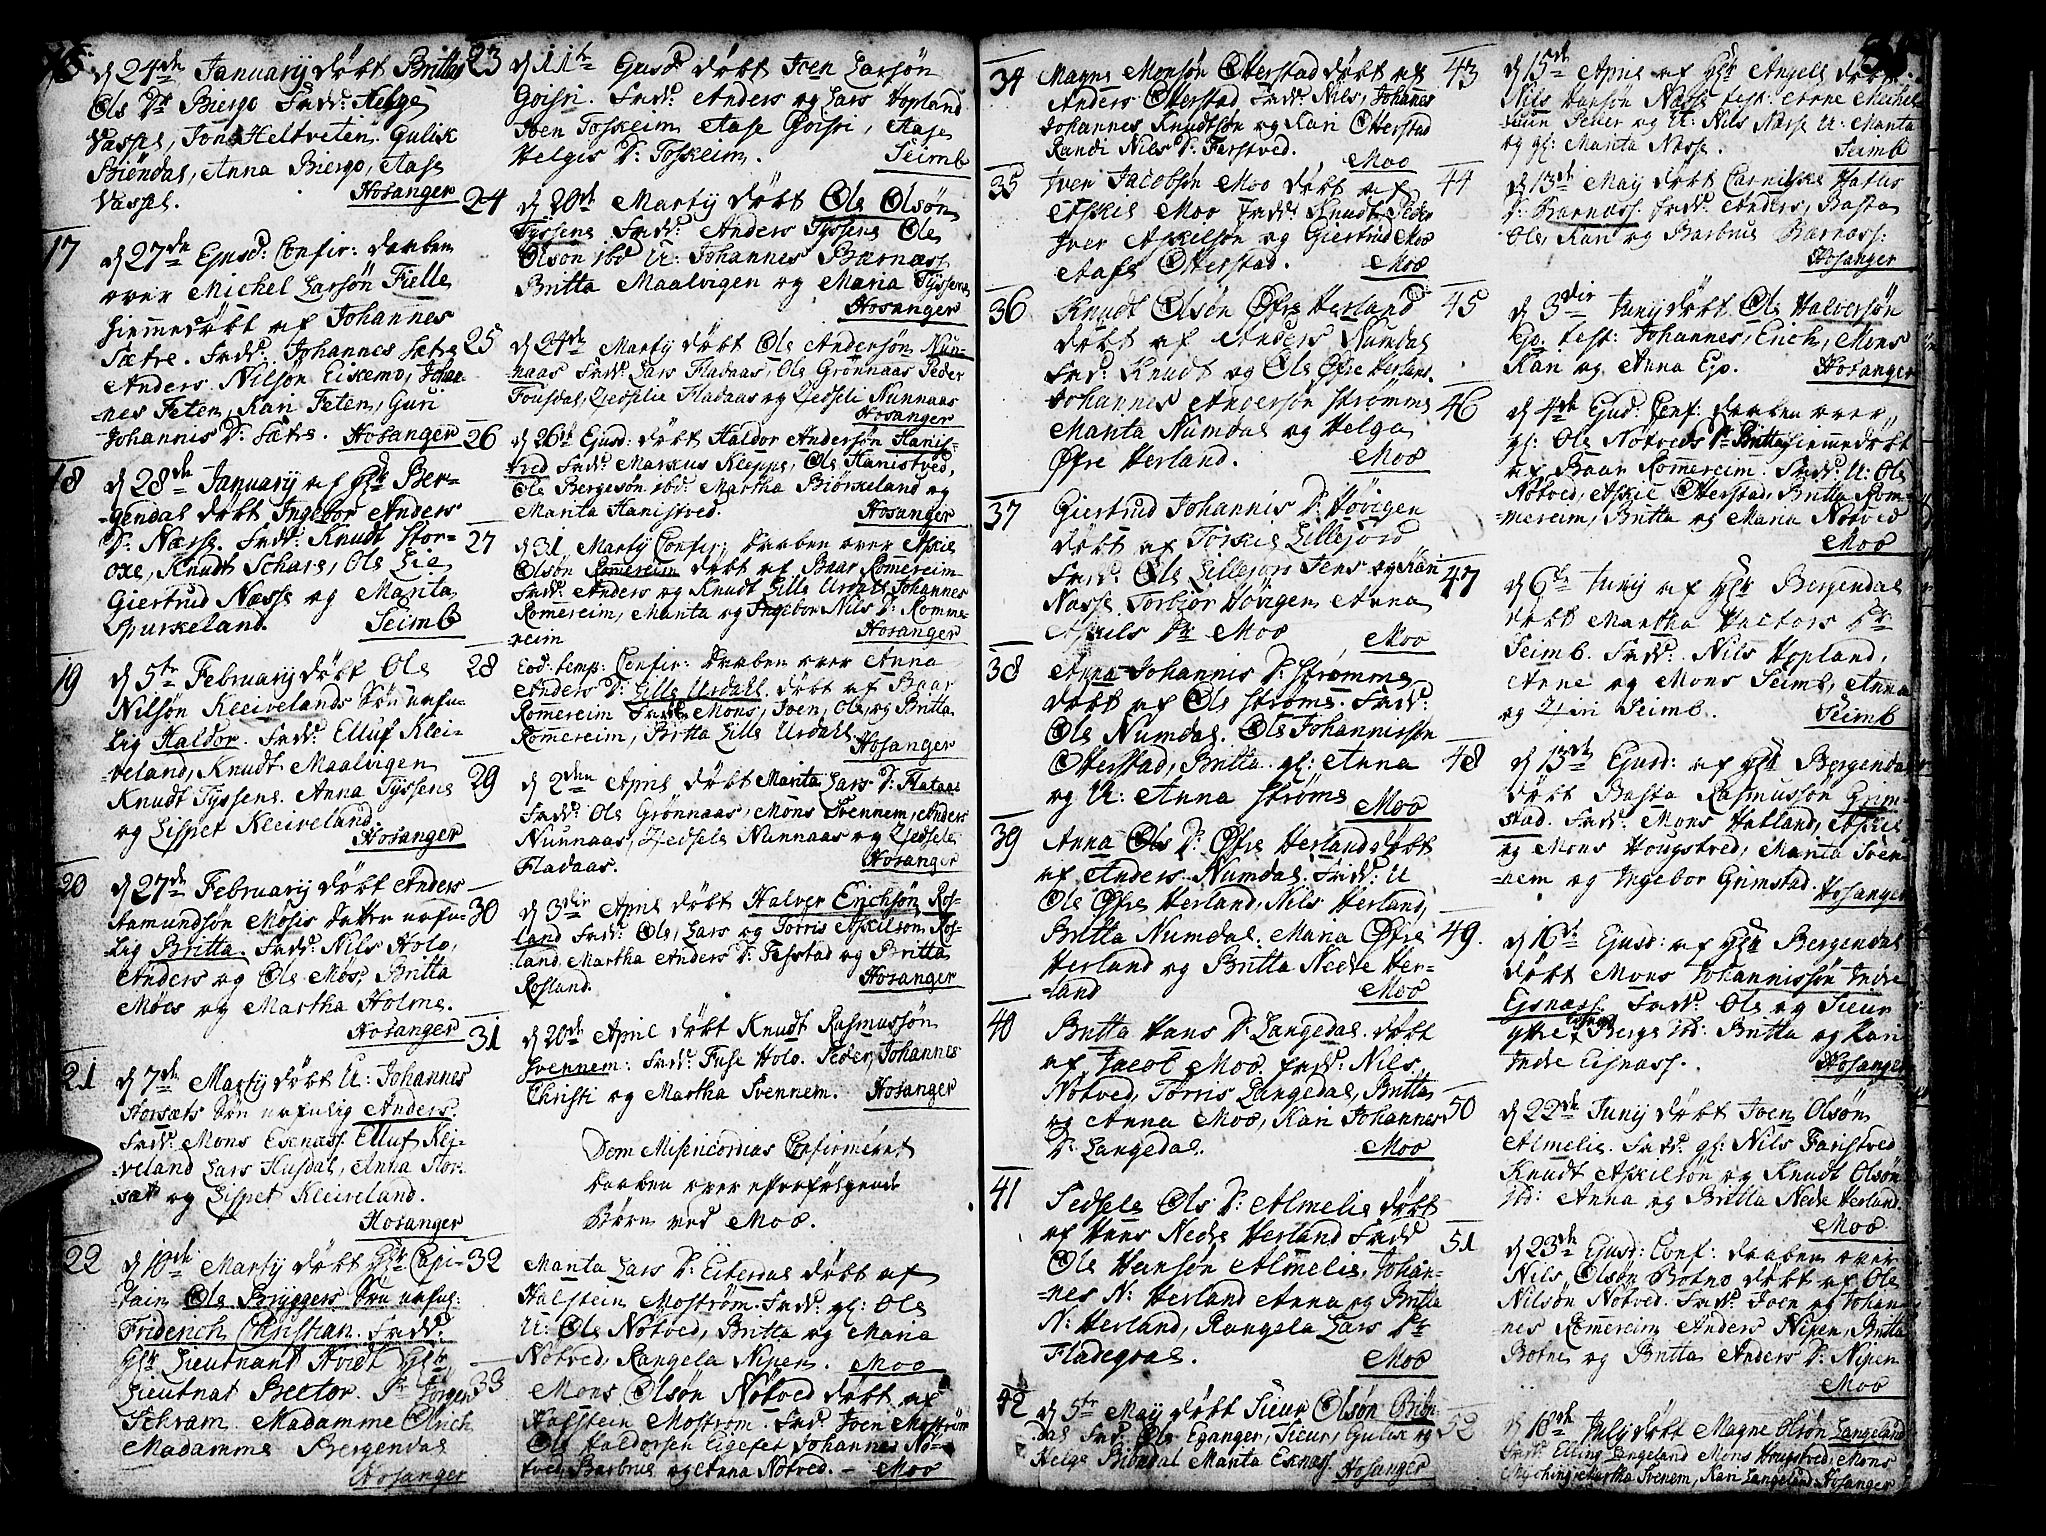 16.
d 24de Januarij döbt Britta
Ols Dr Biergo Fadd: Helge
Vassel, Jon Heltveten Gulik
Biöndal, Anna Biergo, Aase
Vassel. Hosanger
17
d 27de Ejusd: Confir: Daaben
over Michel Larsön Fielle
hiemmedöbt af Johannes
Sætre. Fadd: Johannes Sætre
Anders Nilsön Eikemo, Johan-
-nes Feten, Kari Feten, Guri
Johannis D: Sætre. Hosanger
18
d 28de Januarij af Hr Ber-
-gendal döbt Ingebor Anders
D: Næsse. Fadd: Knudt Stor-
oxe, Knudt Schare, Ole Lie
Giertrud Næsse og Marita
Spurkeland. Seimb
19
d 5te Februarij döbt Ole
Nilsön Kleivelands Sön nafn-
lig Haldor. Fadd: Elluf Klei-
-veland, Knudt Maalvigen
Knudt Tÿssens Anna Tÿssens
og Lispet Kleiveland.
Hosanger
20
d 27de Februarij döbt Anders
Aamundsön Mösis Datter nafn-
lig Britta. Fadd: Nils Holo,
Anders og Ole Mös, Britta
Möes og Martha Holme.
Hosanger
21
d 7de Martij döbt U: Johannes
Horsæts Sön nafnlig Anders.
Fadd: Mons Eknæss Elluf Klei-
-veland Lars Husdal, Anna Hor-
sæt og Lispet Kleiveland.
Hosanger
22
d 10de Martij döbt Hr Capi-
tain Ole Bryggers Sön nafnl:
Friderich Christian. Fadd:
Hr Lieutnant Hvidt Hr
Lieutnat Rector. Sr Jörgen
Schram Madamme Olrich
Madamme Bergendal
Hosanger
23
d 11te Ejusd döbt Joen Larsön
Goisri. Fadd: Anders og Lars Hopland
Joen Toskeim Aase Goisri, Aase
Helges D: Toskeim. Seimb
24
d 20de Martij döbt Ole Olsön
Tyssens Fadd: Anders Tyssens Ole
Olson ibd U: Johannes Bærnæss
Britta Maalvigen og Maria Tÿssens
Hosanger
25
d 24de Martij döbt Ole Andersön Nun-
-naas Fadd: Lars Fladaas, Ole Grönnaas Peder
Fousdal, Zedselie Fladaas og Zedseli Nunnaas
Hosanger
26
d 26de Ejusd: döbt Haldor Andersön Hanis-
tved Fadd: Markus Kleppe, Ole Hanistved,
Ole Bergesön ibd: Martha Biörkeland og
Marita Hanistved. Hosanger
27
d 31 Martij Confir: Daaben over Askil
Olsön Romereim döbt af Baar Romereim
Fadd: Anders og Knudt Lille Urdahl Johannes
Romereim, Marita og Ingebor Nils D: Romme-
reim Hosanger
28
Eod: temp: Confir: Daaben over Anna
Anders D: Lille Urdahl. döbt af Baar
Romereim Fadd: Mons, Joen, Ole, og Britta
Romereim, Britta Lille Urdahl.
Hosanger
29
d 2den April döbt Marita Lars D: Fladaas
Fadd: Ole Grönnaas, Mons Svennem, Anders
Nunnaas, Zedsele Nunnaas og Zedsele
Fladaas. Hosanger
30
d 3die April döbt Halver Erichsön Ros-
-land Fadd: Ole, Lars og Torris Askilson Ros-
-land, Martha Anders D: Fesstad og Britta
Rosland. Hosanger
31
d 20de April döbt Knudt Rasmussön
Svennem: Fadd: Fase Holo. Peder, Johannes
Christi og Martha Svennem. Hosanger
Dom Misericordias Confirmeret
Daaben over efterfölgende
Börn ved Moo.
32
Marita Lars D: Eitersdal döbt af
Halstein Moström. Fadd: gl: Ole
U: Ole Nötved, Britta og Maria
Nötved, Rangela Nipen. Moo
33
Mons Olsön Nötved döbt af
Halstein Moström. Fadd: Joen Moström
Ole Haldorsen Eigeset Johannes Nö-
tved, Barbrue og Anna Nötved. - Moo
34
Magne Monsön Otterstad döbt af
Anders Otterstad, Fadd: Nils, Johannes
Johannes Knudtsön og Kari Otterstad
Randi Nils D: Farstved. Moo
35
Iver Jacobsön Moo döbt af
Askil Moo Fadd: Knudt, Peder
Iver Askilsön og Giertrud Moo
Aase Otterstad. Moo
36
Knudt Olsön Öfre Herland
döbt af Anders Numdal
Fad: Knudt og Ole Öfre Herland.
Johannes Andersön Strömme
Marita Numdal og Helga
Öfre Herland. Moo
37
Giertrud Johannis D: Hövigen
döbt af Törkil Lillejord
Fadd: Ole Lillejord Jens og Kari
Nasse Torbior Hövigen Anna
Askils Dr Moo Moo
38
Anna Johannis D: Strömme
döbt af Ole Ströms. Fadd:
Ole Numdal. Ole Johannissön
Otterstad, Britta. gl: Anna
og U: Anna Ströms Moo
39
Anna Ols D: Öfre Herlands döbt
af Anders Numdal. Fadd: U
Ole Öfre Herland, Nils Herland,
Britta Numdal. Maria Öfre
Herland og Britta Nedre Her-
-land Moo
40
Britta Hans D: Langedal. döbt
af Jacob Moo. Fadd: Nils
Nötved, Törris Langedal, Britta
og Anna Moo, Kari Johannes
D: Langedal. Moo
41
Sedsela Ols D: Almelie döbt
af Hans Nedre Herland Fadd
Ole Hansön Almelie. Johan-
-nes N: Herland Anna og Britta
N: Herland, Rangela Lars Dr
Fladegral. Moo
42
d 5te Maij döbt Sieur Olsön Biön-
dal Fad: Ole Eganger, Sieur, Gulik og
Helge Biöndal Marita Eknæss. Hosanger
43
d 15de April af Hr Angels döbt
Nils Hansön Næsse test: Arne Michel
Siuer og U: Nils Næsse U: Marita
og gl: Marita Næsse. Seimb
44
d 13de Maij döbt Carnilske Hatles
D: Bærnæss. Fadd: Anders, Basta
Ole, Kari og Barbrue Bærnæss.
Hosanger
45
d 3die Junij döbt Ole Halversön
Eje. test: Johannes, Erich, Mons
Kari og Anna Eje. Hosanger
46
d 4de Ejusd: Conf: Daaben over
gl: Ole Nötveds D: Britta hiemmedöbt
af Baar Romereim. Fadd: U: Ole
Nötved, Askil Otterstad, Britta Rom-
-mereim, Britta og Maria Nötved
Moo
47
d 6te Junij af Hr Bergendal
döbt Martha Hectors Dr
Seimb. Fadd: Nils Hopland,
Anne og Mons Seimb, Anna
og Zeri Seimb. Seimb
48
d 13de Ejusd: af Hr Bergendal
döbt Basta Rasmusson Grim-
stad. Fadd: Mons Hatland, Askil
og Mons Hougstved, Marita Sven-
-nem og Ingebor Grimstad. Hosanger
49.
d 16de Ejusd: af Hr Bergendal
döbt Mons Johannissön Indre
Eisnæss. Fadd: Ole og Sieur
Ytre Berge ibd: Britta og Kari
Indre Eisnæss. Hosanger
50
d 22de Junij döbt Joen Olsön
Almelie. Fadd: gl: Nils Faristved
Knudt Askilsön og Knudt Olsön
ibd: Anna og Britta Nedre Herland
Moo
51
d 23de Ejusd: Conf: Daaben over
Nils Olsön Botne döbt af Ole
Nilsön Nötved. Fadd: Joen og Johan-
nes Romereim Anders Nipen, Britta
Botne og Britta Anders D: Nipen
Moo
52
d 18de Julij döbt Magne Olsön Langeland
Fadd: Elling Langeland Mons Hougstved, Mons
Martha Svenem, Kari Langeland. Hosanger